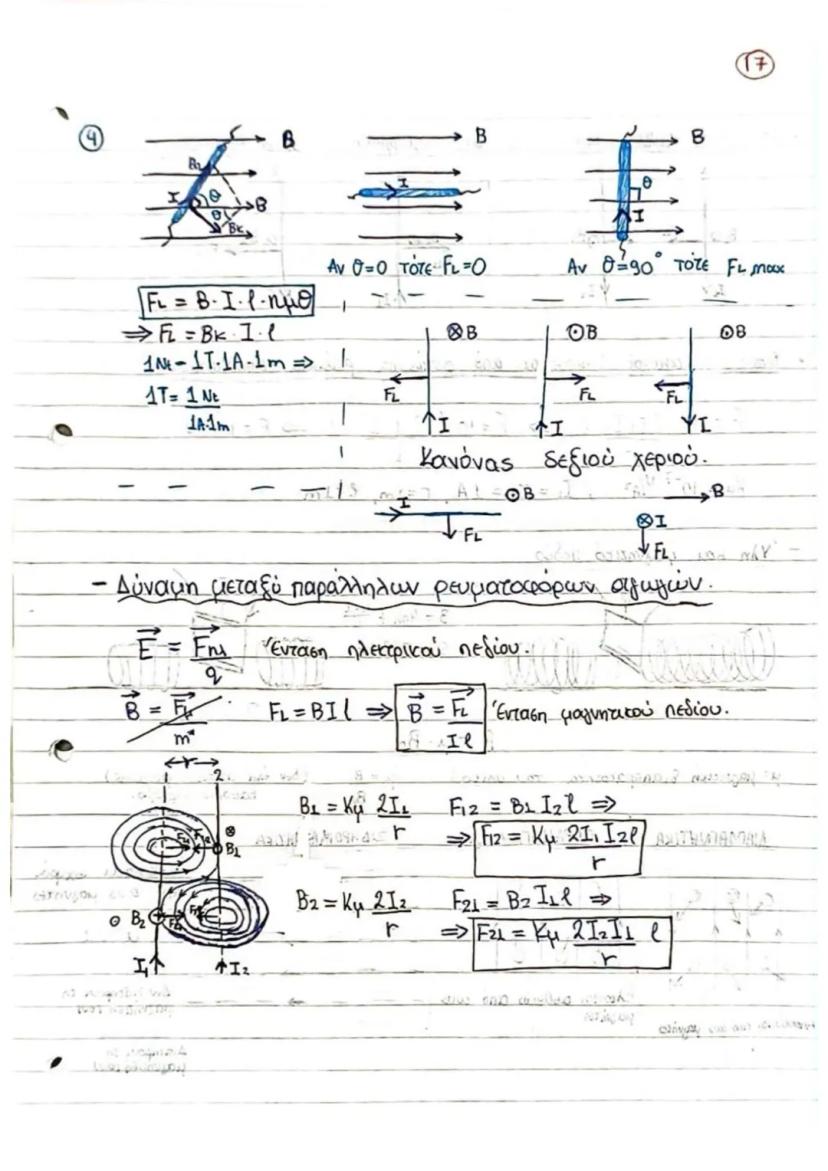 17
4
B B B
B₁ I θ I θ
I θ B θ Bκ
Αν θ=0 τότε FL=0 Αν θ=90° τότε FL,max
FL = B·I·l·ημθ
⇒ FL = Bκ·I·l
⊗B ⊙B ⊙B
1Nt = 1T·1A·1m ⇒
1T = 1Nt / 1A·1m
FL FL FL
I I I
Κανόνας δεξιού χεριού.
I ⊙B B
⊗I
FL FL
- Δύναμη μεταξύ παράλληλων ρευματοφόρων αγωγών.
E = Fηλ / q Ένταση ηλεκτρικού πεδίου.
B = FL / m* FL = BIl ⇒ B = FL / Il Ένταση μαγνητικού πεδίου.
r
2
B1 = Kμ 2I1 / r F12 = B1 I2 l ⇒
⊗ B1
⇒ F12 = Kμ 2I1 I2 l / r
B2 = Kμ 2I2 / r F21 = B2 I1 l ⇒
⊙ B2
⇒ F21 = Kμ 2I2 I1 / r l
I1 I2